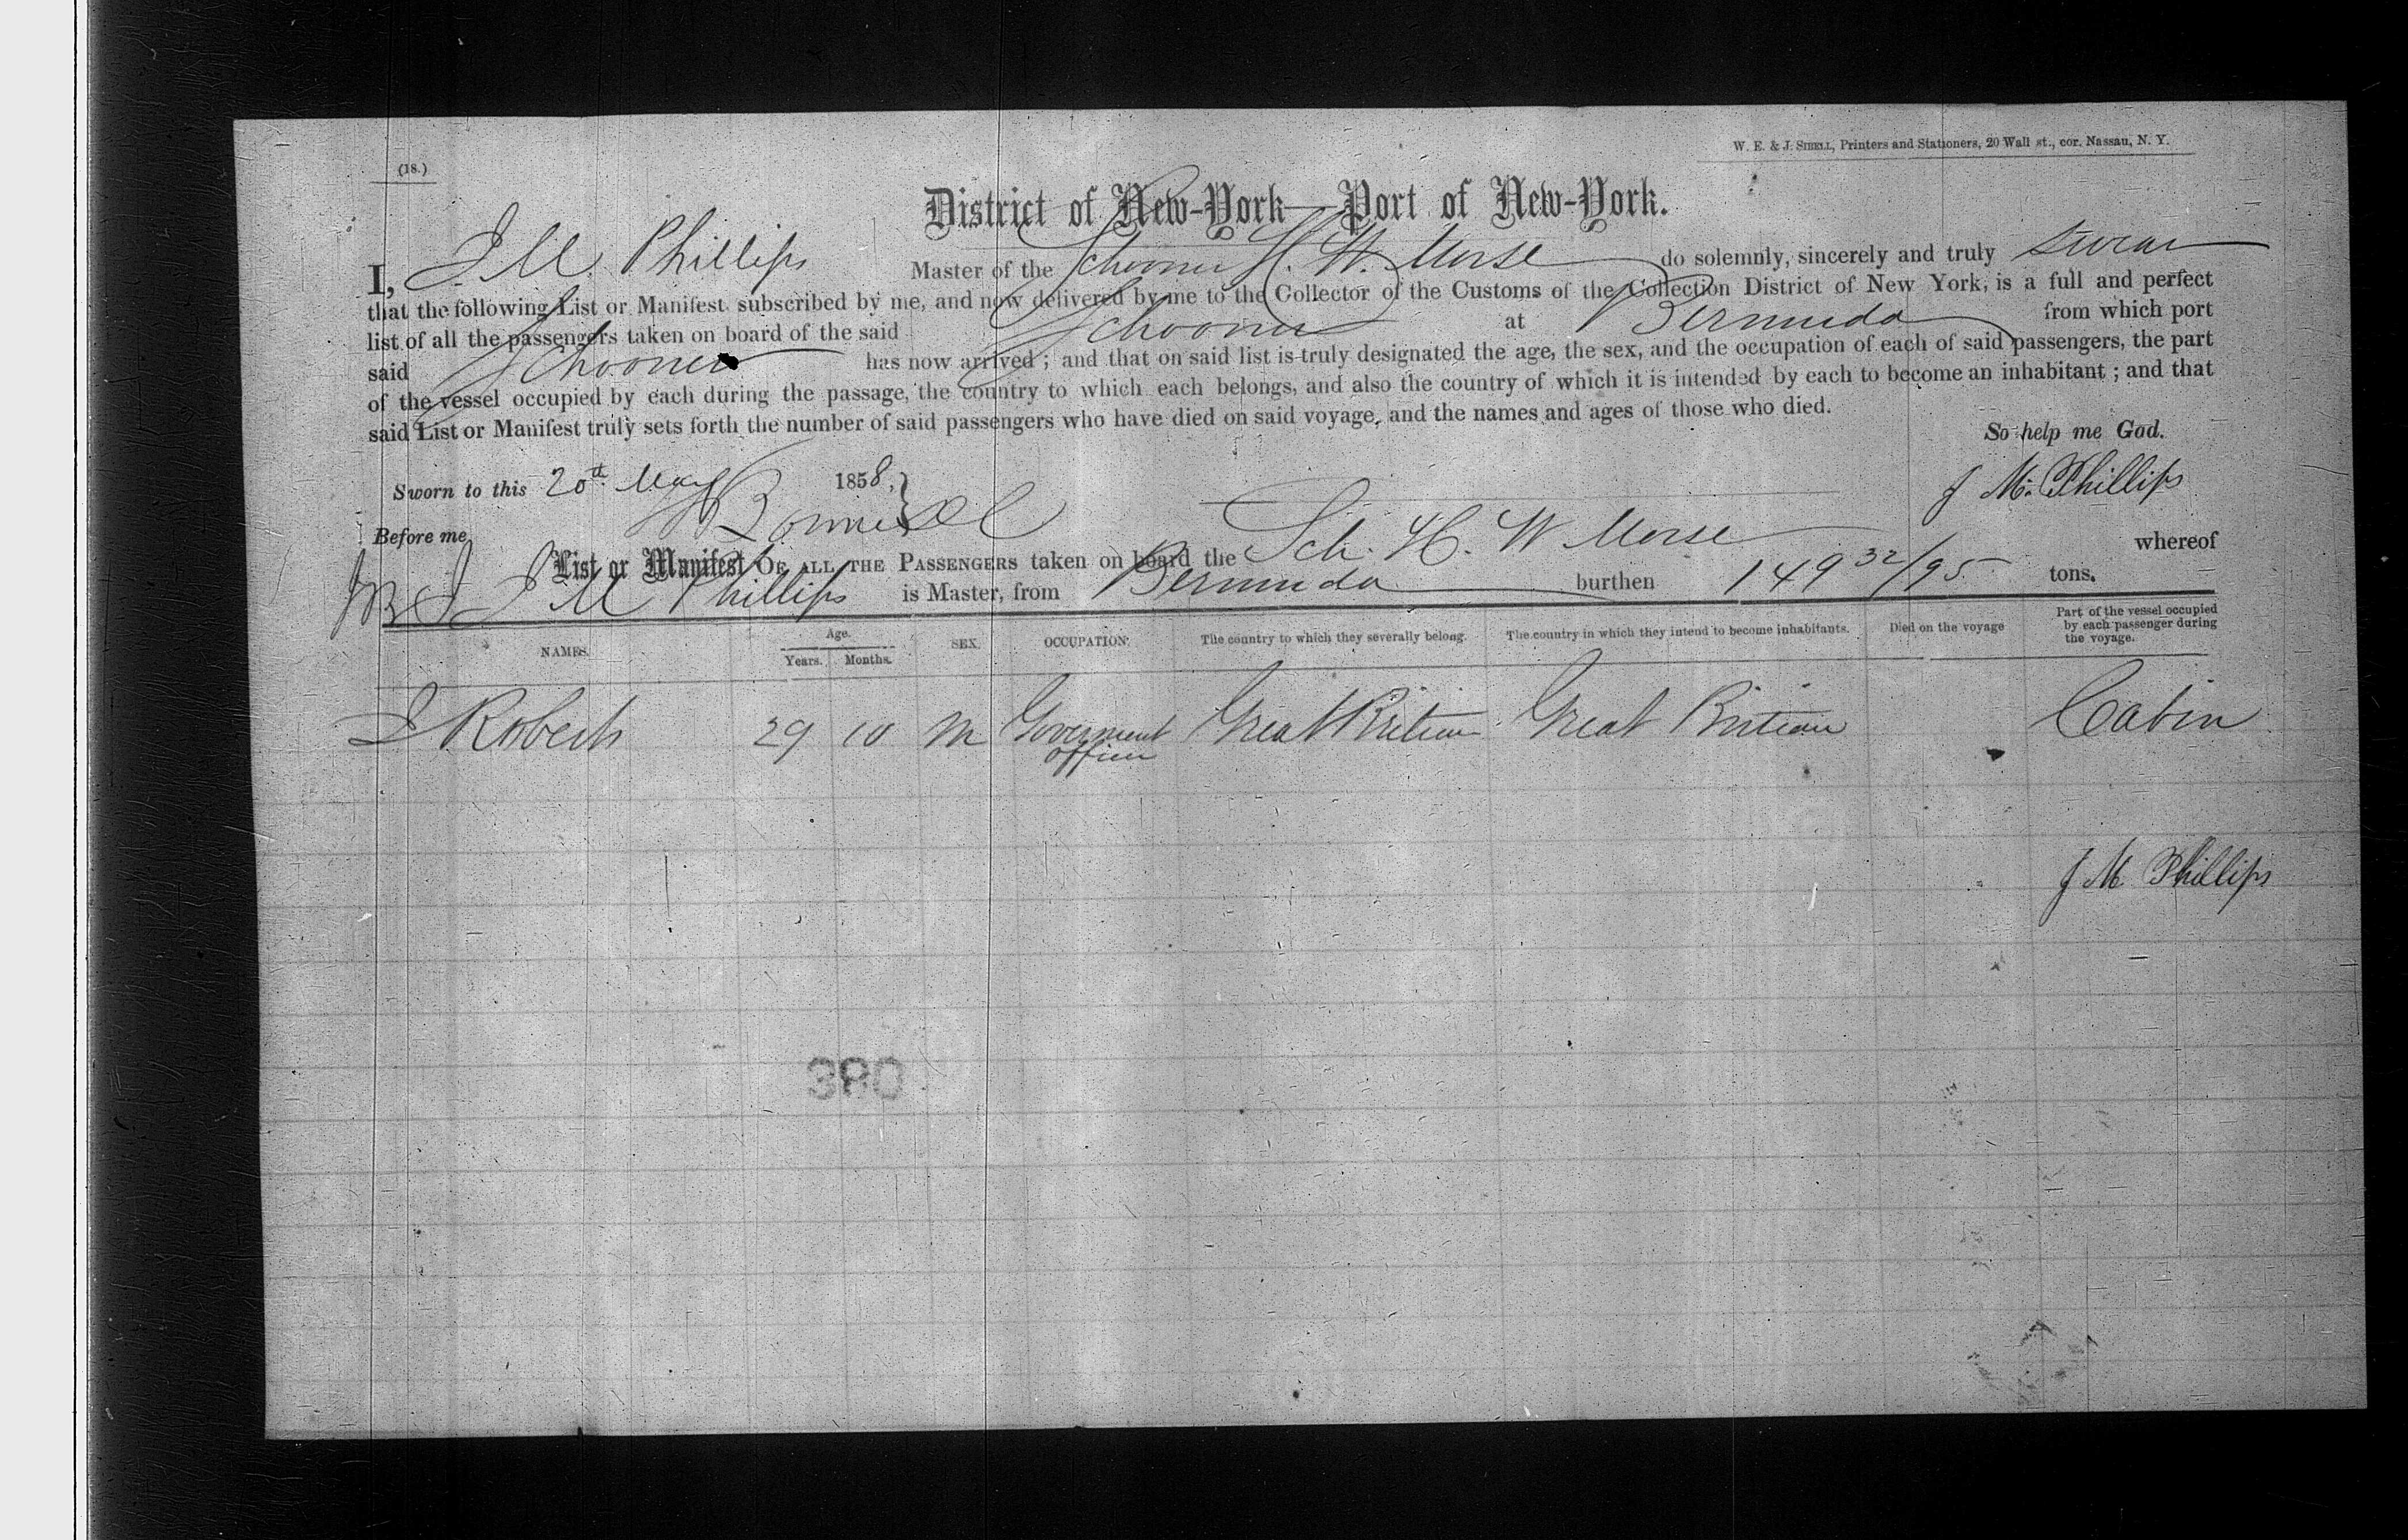 W. E. & J. SIBELL, Printers and Stationers, 20 Wall st., cor. Nassau, N. Y.
(18.)
District of New-York—Port of New-York.
I, J. M. Phillips Master of the Schooner H. W. Morse do solemnly, sincerely and truly swear
that the following List or Manifest subscribed by me, and now delivered by me to the Collector of the Customs of the Collection District of New York, is a full and perfect
list of all the passengers taken on board of the said Schooner at Bermuda from which port
said Schooner has now arrived; and that on said list is truly designated the age, the sex, and the occupation of each of said passengers, the part
of the vessel occupied by each during the passage, the country to which each belongs, and also the country of which it is intended by each to become an inhabitant; and that
said List or Manifest truly sets forth the number of said passengers who have died on said voyage, and the names and ages of those who died.
So help me God.
Sworn to this 20th May 1858, J M. Phillips
Before me
List or Manifest OF ALL THE PASSENGERS taken on board the Sch. H. W Morse whereof
J M Phillips is Master, from Bermuda burthen 149 32/95 tons.
NAMES. Age. Years. Months. SEX. OCCUPATION. The country to which they severally belong. The country in which they intend to become inhabitants. Died on the voyage Part of the vessel occupied by each passenger during the voyage.
J Roberts 29 10 M Goverment officer Great Britian Great Britian Cabin
J M Phillips
380